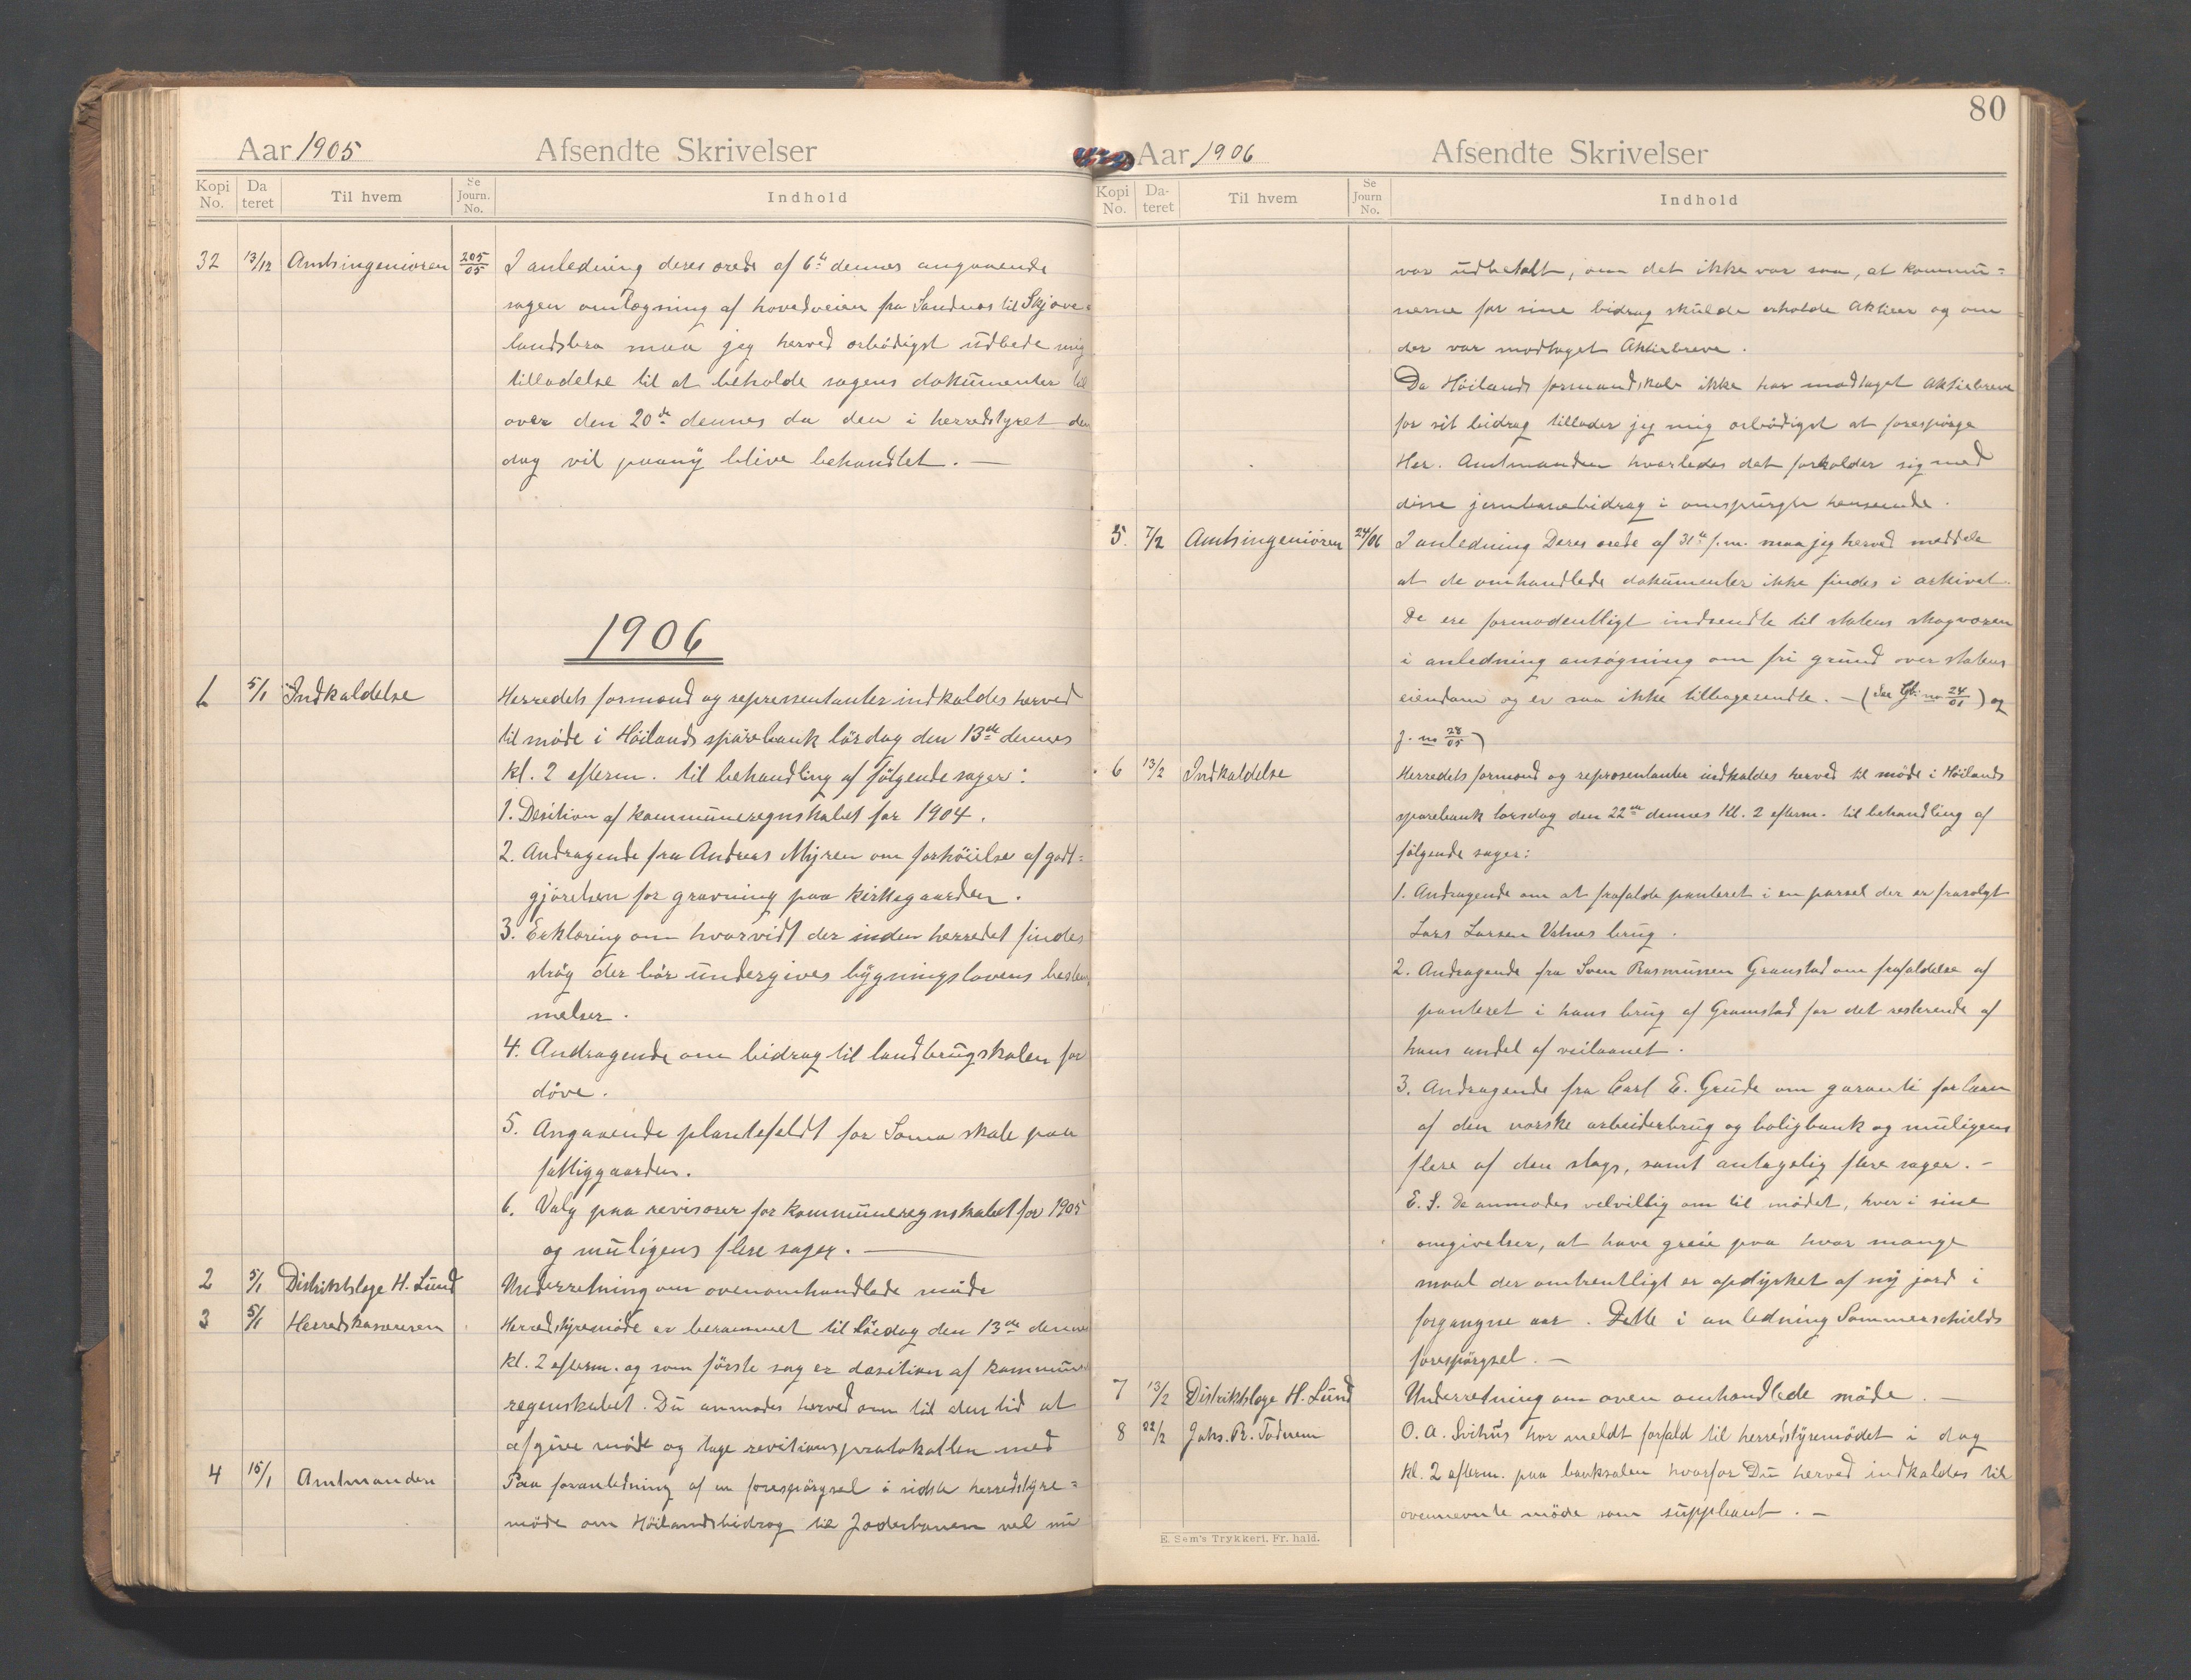 Aar 1905 Afsendte Skrivelser
Kopi No. Da teret Til hvem Se Journ. No. Indhold
32 13/12 Amtsingeniøren 205/05 I anledning deres ærede af 6te dennes angaaende
sagen omlægning af hovedveien fra Sandnæs til Skjæve-
landsbro maa jeg herved ærbødigst udbede mig
tilladelse til at beholde sagens dokumenter til
over den 20de dennes da den i herredstyret den
dag vil paany blive behandlet. —
1906
1 5/1 Indkaldelse Herredets formænd og repræsentanter indkaldes herved
til møde i Höilands sparebank lördag den 13de dennes
kl. 2 efterm. til behandling af følgende sager:
1. Desition af kommuneregnskabet for 1904.
2. Andragende fra Andreas Myren om forhöielse af godt-
gjörelsen for gravning paa kirkegaarden.
3. Erklæring om hvorvidt der inden herredet findes
strög der bör undergives bygningslovens bestem-
melser.
4. Andragende om bidrag til landbrugskolen for
döve.
5. Angaaende plantefeldt for Soma skole paa
fattiggaarden.
6. Valg paa revisorer for kommuneregnskabet for 1905
og muligens flere sager. —
2 5/1 Distriktslæge H. Lund Underretning om ovenomhandlede möde
3 5/1 Herredskasereren Herredstyremöde er berammet til Lördag den 13de dennes
kl. 2 efterm. og som förste sag er desition af kommune
regnskabet. Du anmodes herved om til den tid at
afgive möde og tage revitionsprotokollen med
4 15/1 Amtmanden Paa foranledning af en forespörgsel i sidste herredstyre-
möde om Höilandsbidrag til Jæderbanen vel nu
80
Aar 1906 Afsendte Skrivelser
Kopi No. Da- teret Til hvem Se Journ No. Indhold
var udbetalt, om det ikke var saa, at kommu-
nerne for sine bidrag skulde erholde Aktier og om
der var modtaget Aktiebreve.
Da Höilands formandskab ikke har modtaget Aktiebreve
for sit bidrag tillader jeg mig ærbödigst at forespörge
Her. Amtmanden hvorledes det forholder sig med
disse jernbanebidrag i omspurgte henseende.
5. 7/2 Amtsingeniören 24/06 I anledning Deres ærede af 31te f.m. maa jeg herved meddele
at de omhandlede dokumenter ikke findes i arkivet.
De ere formodentligt indsendte til statens skogvæsen
i anledning ansögning om fri grund over statens
eiendom og er saa ikke tilbagesendte. — (see no 24/01) og
j. no 28/05)
6 13/2 Indkaldelse Herredets formænd og repræsentanter indkaldes herved til möde i Höilands
sparebank torsdag den 22de dennes Kl. 2 efterm. til behandling af
fölgende sager:
1. Andragende om at frafalde panteret i en parsel der er frasolgt
Lars Larsen brug.
2. Andragende fra Sven Rasmussen Gramstad om frafaldelse af
panteret i hans brug af Gramstad for det resterende af
hans andel af veilaanet.
3. Andragende fra Carl E. Grude om garanti for laan
af den norske arbeiderbrug og boligbank og muligens
flere af den slags, samt antagelig flere sager. –
E. S. De anmodes velvillig om til mödet, hver i sine
omgivelser, at have greie paa hvor mange
maal der omtrentligt er opdyrket af ny jord i
forgangne aar. Dette i anledning Sommerschields
forespörgsel. —
7 13/2 Distriktslæge H. Lund Underretning om oven omhandlede möde. —
8 22/2 Johs. R. Tödnem O. A. Svihus har meldt forfald til herredstyremödet i dag
Kl. 2 efterm. paa banksalen hvorfor Du herved indkaldes til
ovennevnte möde som suppleant. —
E. Sem's Trykkeri, Fr. hald.